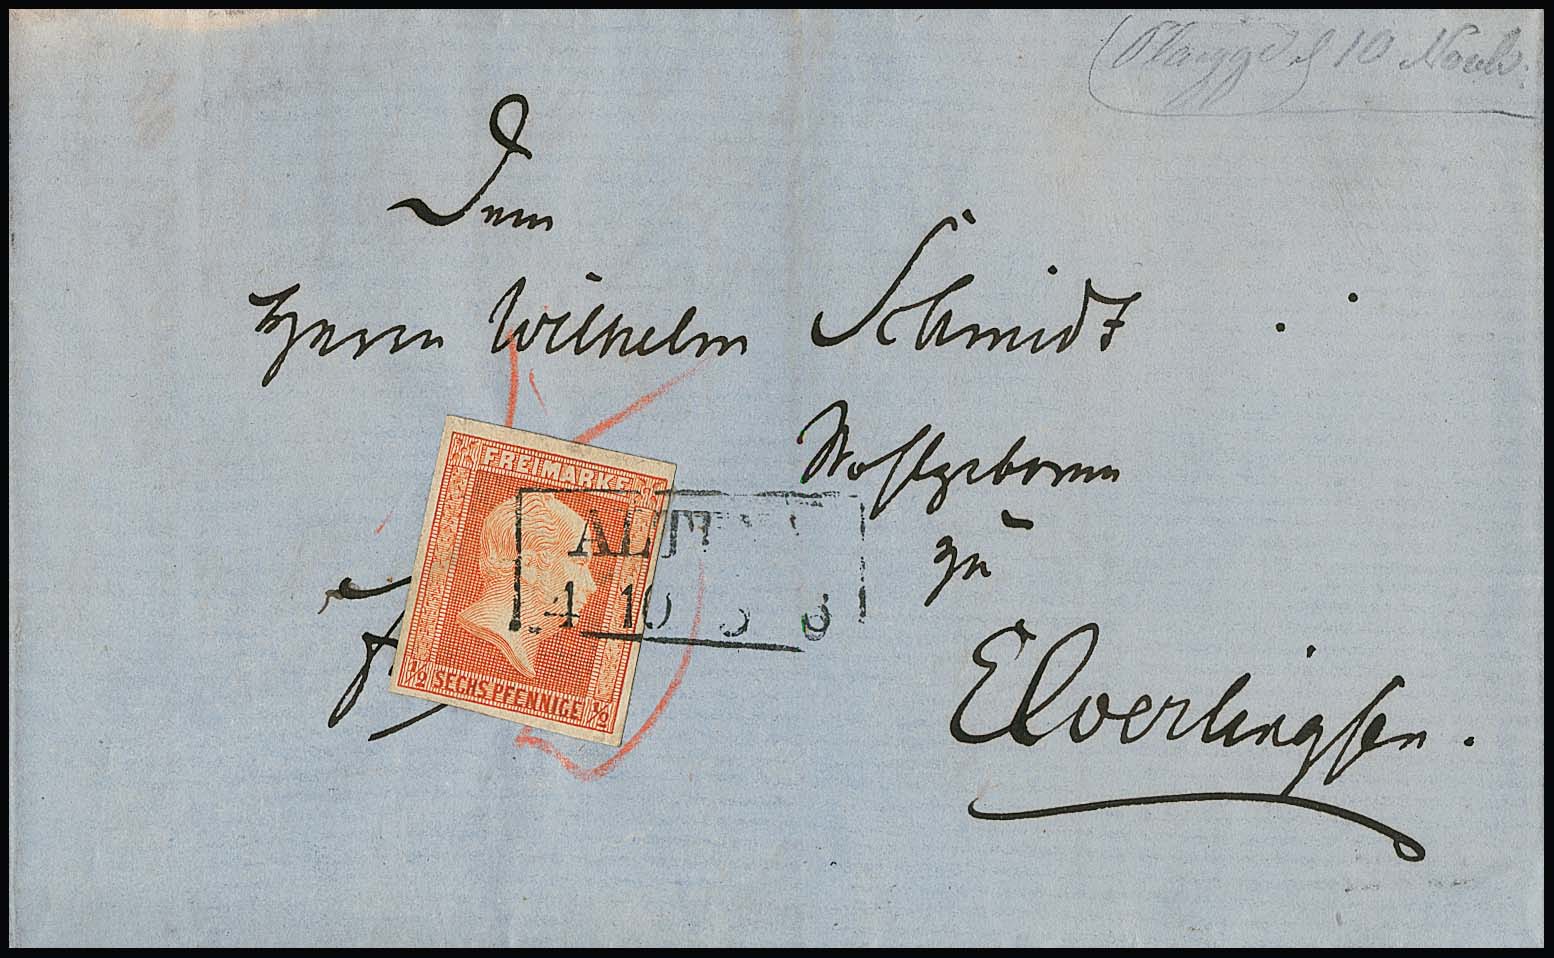 10
Dem
Herrn Wilhelm Schmidt
Wohlgeboren
zu
Elverlingsen.
FREIMARKE
½ SECHS PFENNIGE ½
ALT
4 10